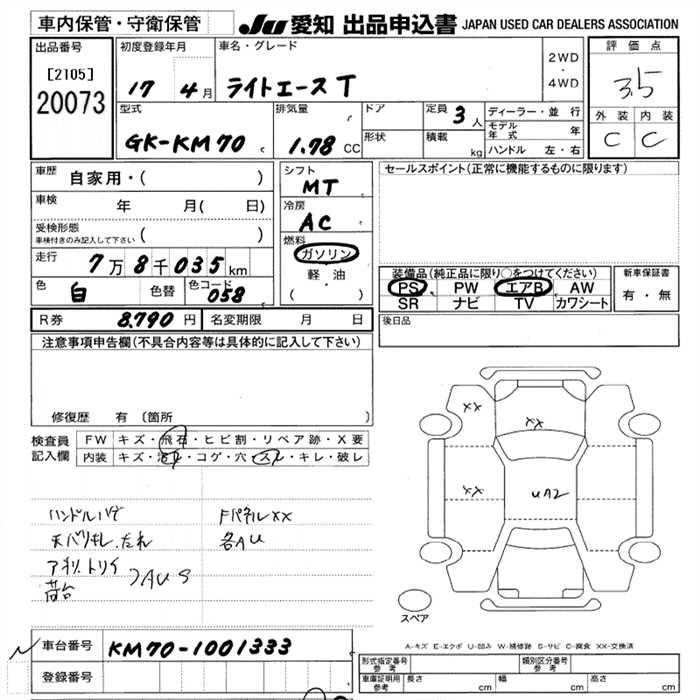 車内保管・守衛保管
JU 愛知 出品申込書 JAPAN USED CAR DEALERS ASSOCIATION
出品番号
[2105]
20073
初度登録年月
17 4月
車名・グレード
ライトエースT
2WD
・
4WD
評価点
3.5
外装 内装
C C
型式
GK-KM70
排気量
1.78 CC
ドア
形状
定員 3人
積載 kg
ディーラー・並行
モデル年式 年
ハンドル 左・右
車歴 自家用・( )
車検 年 月( 日)
受検形態
車検付きのみ記入して下さい ( )
走行 7万8千035km
色 白 色替 色コード 058
シフト
MT
冷房
AC
燃料
ガソリン
軽油
( ・ )
セールスポイント(正常に機能するものに限ります)
装備品(純正品に限り○をつけてください)
PS PW エアB AW
SR ナビ TV カワシート
新車保証書
有・無
R券 8,790円 名変期限 月 日
後日品
注意事項申告欄(不具合内容等は具体的に記入して下さい)
修復歴 有 〔箇所
検査員
記入欄
FW キズ・飛石・ヒビ割・リペア跡・X要
内装 キズ・汚れ・コゲ・穴・スレ・キレ・破レ
ハンドルハゲ
天バリキレ.たれ
荷台
FパネルXX
各AU
XX
XX
XX
UA2
スペア
A-キズ E-エクボ U-凹み W-補修跡 S-サビ C-腐食 XX-交換済
車台番号 KM70-1001333
登録番号
形式指定番号 参考
類別区分番号 参考
車庫証明用 参考 長さ cm 幅 cm 高さ cm